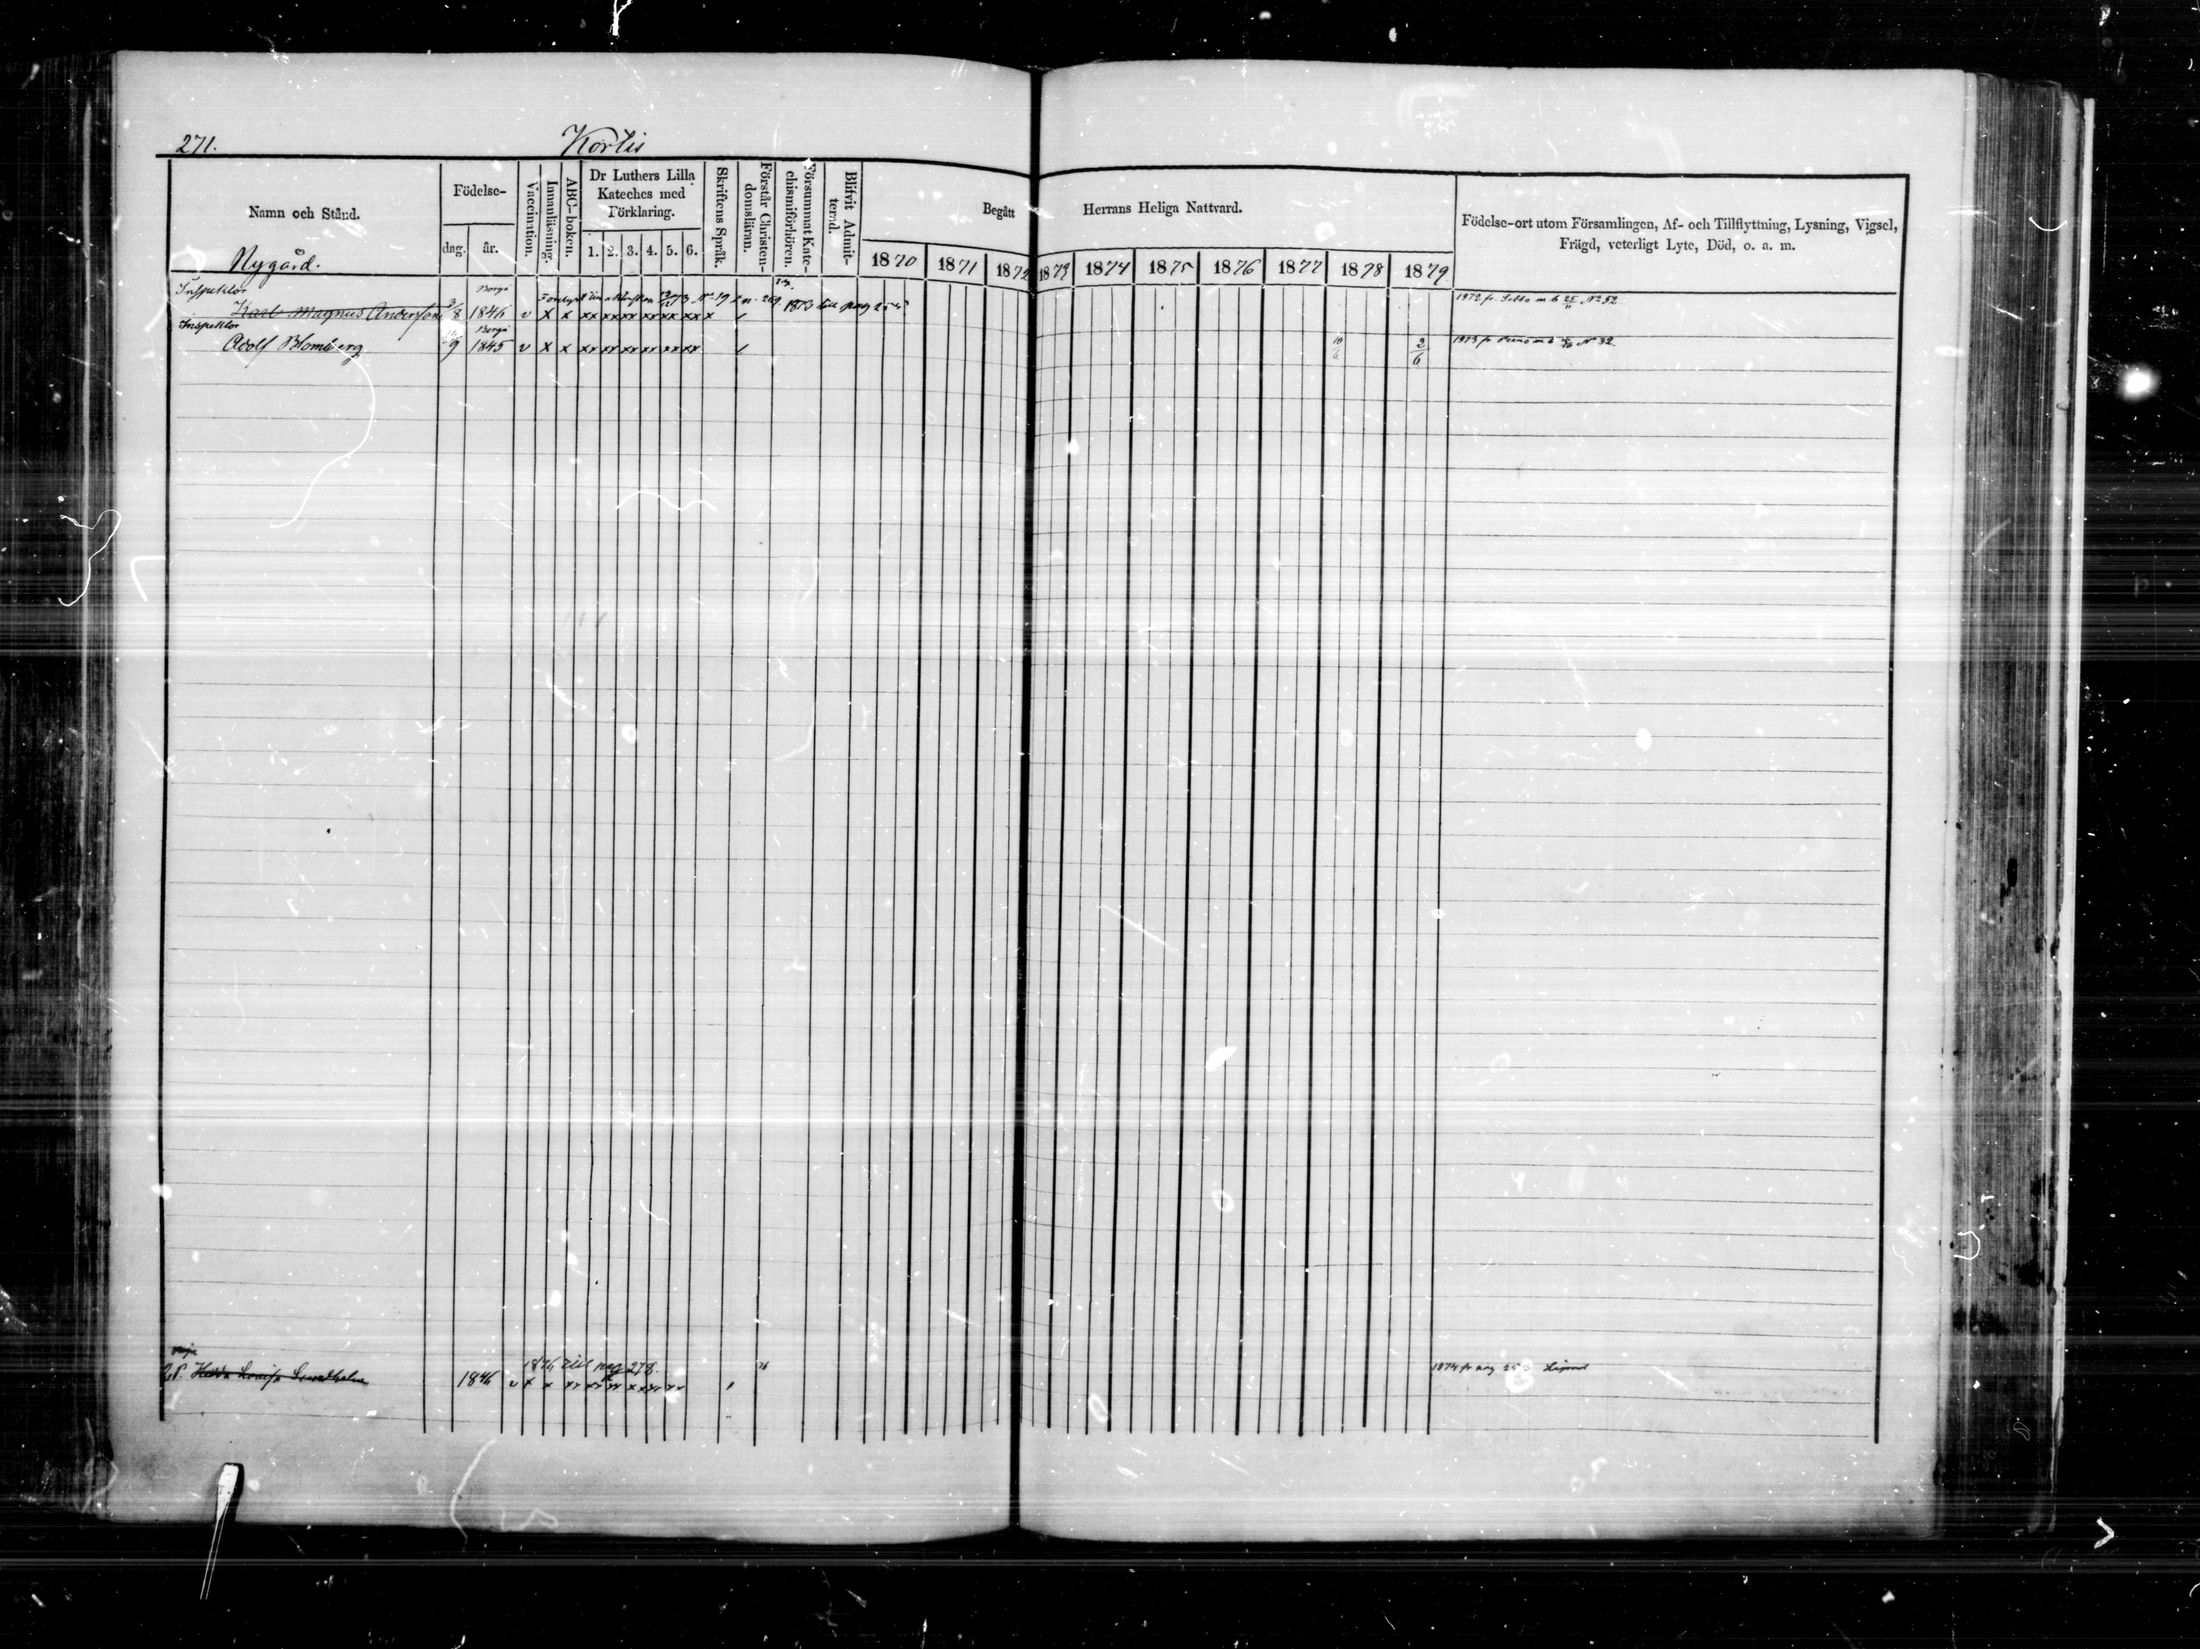 271. Körtis
Namn och Stånd.
Födelse-
dag. år.
Vaccination.
Innanläsning.
ABC-boken.
Dr Luthers Lilla
Kateches med
Förklaring.
1. 2. 3. 4. 5. 6.
Skriftens Språk.
Förstår Christen-
domsläran.
Försummat Kate-
chismiförhören.
Blifvit Admit-
terad.
Begått Herrans Heliga Nattvard.
1870 1871 1872 1873 1874 1875 1876 1877 1878 1879
Födelse-ort utom Församlingen, Af- och Tillflyttning, Lysning, Vigsel,
Frägd, veterligt Lyte, Död, o. a. m.
Nygård.
Inspektor Borgå
Karl Magnus Andersson 3/8 1846 v x x xx xx xx xx xx xx x 1873 till pag
Inspektor Borgå
Adolf Blomberg 9 1845 v x x xx xx xx xx xx xx 10/6 2/6 N 32.
1876 till pag 278.
Lovisa 1846 v x x xx xx xx 1874 fr pag